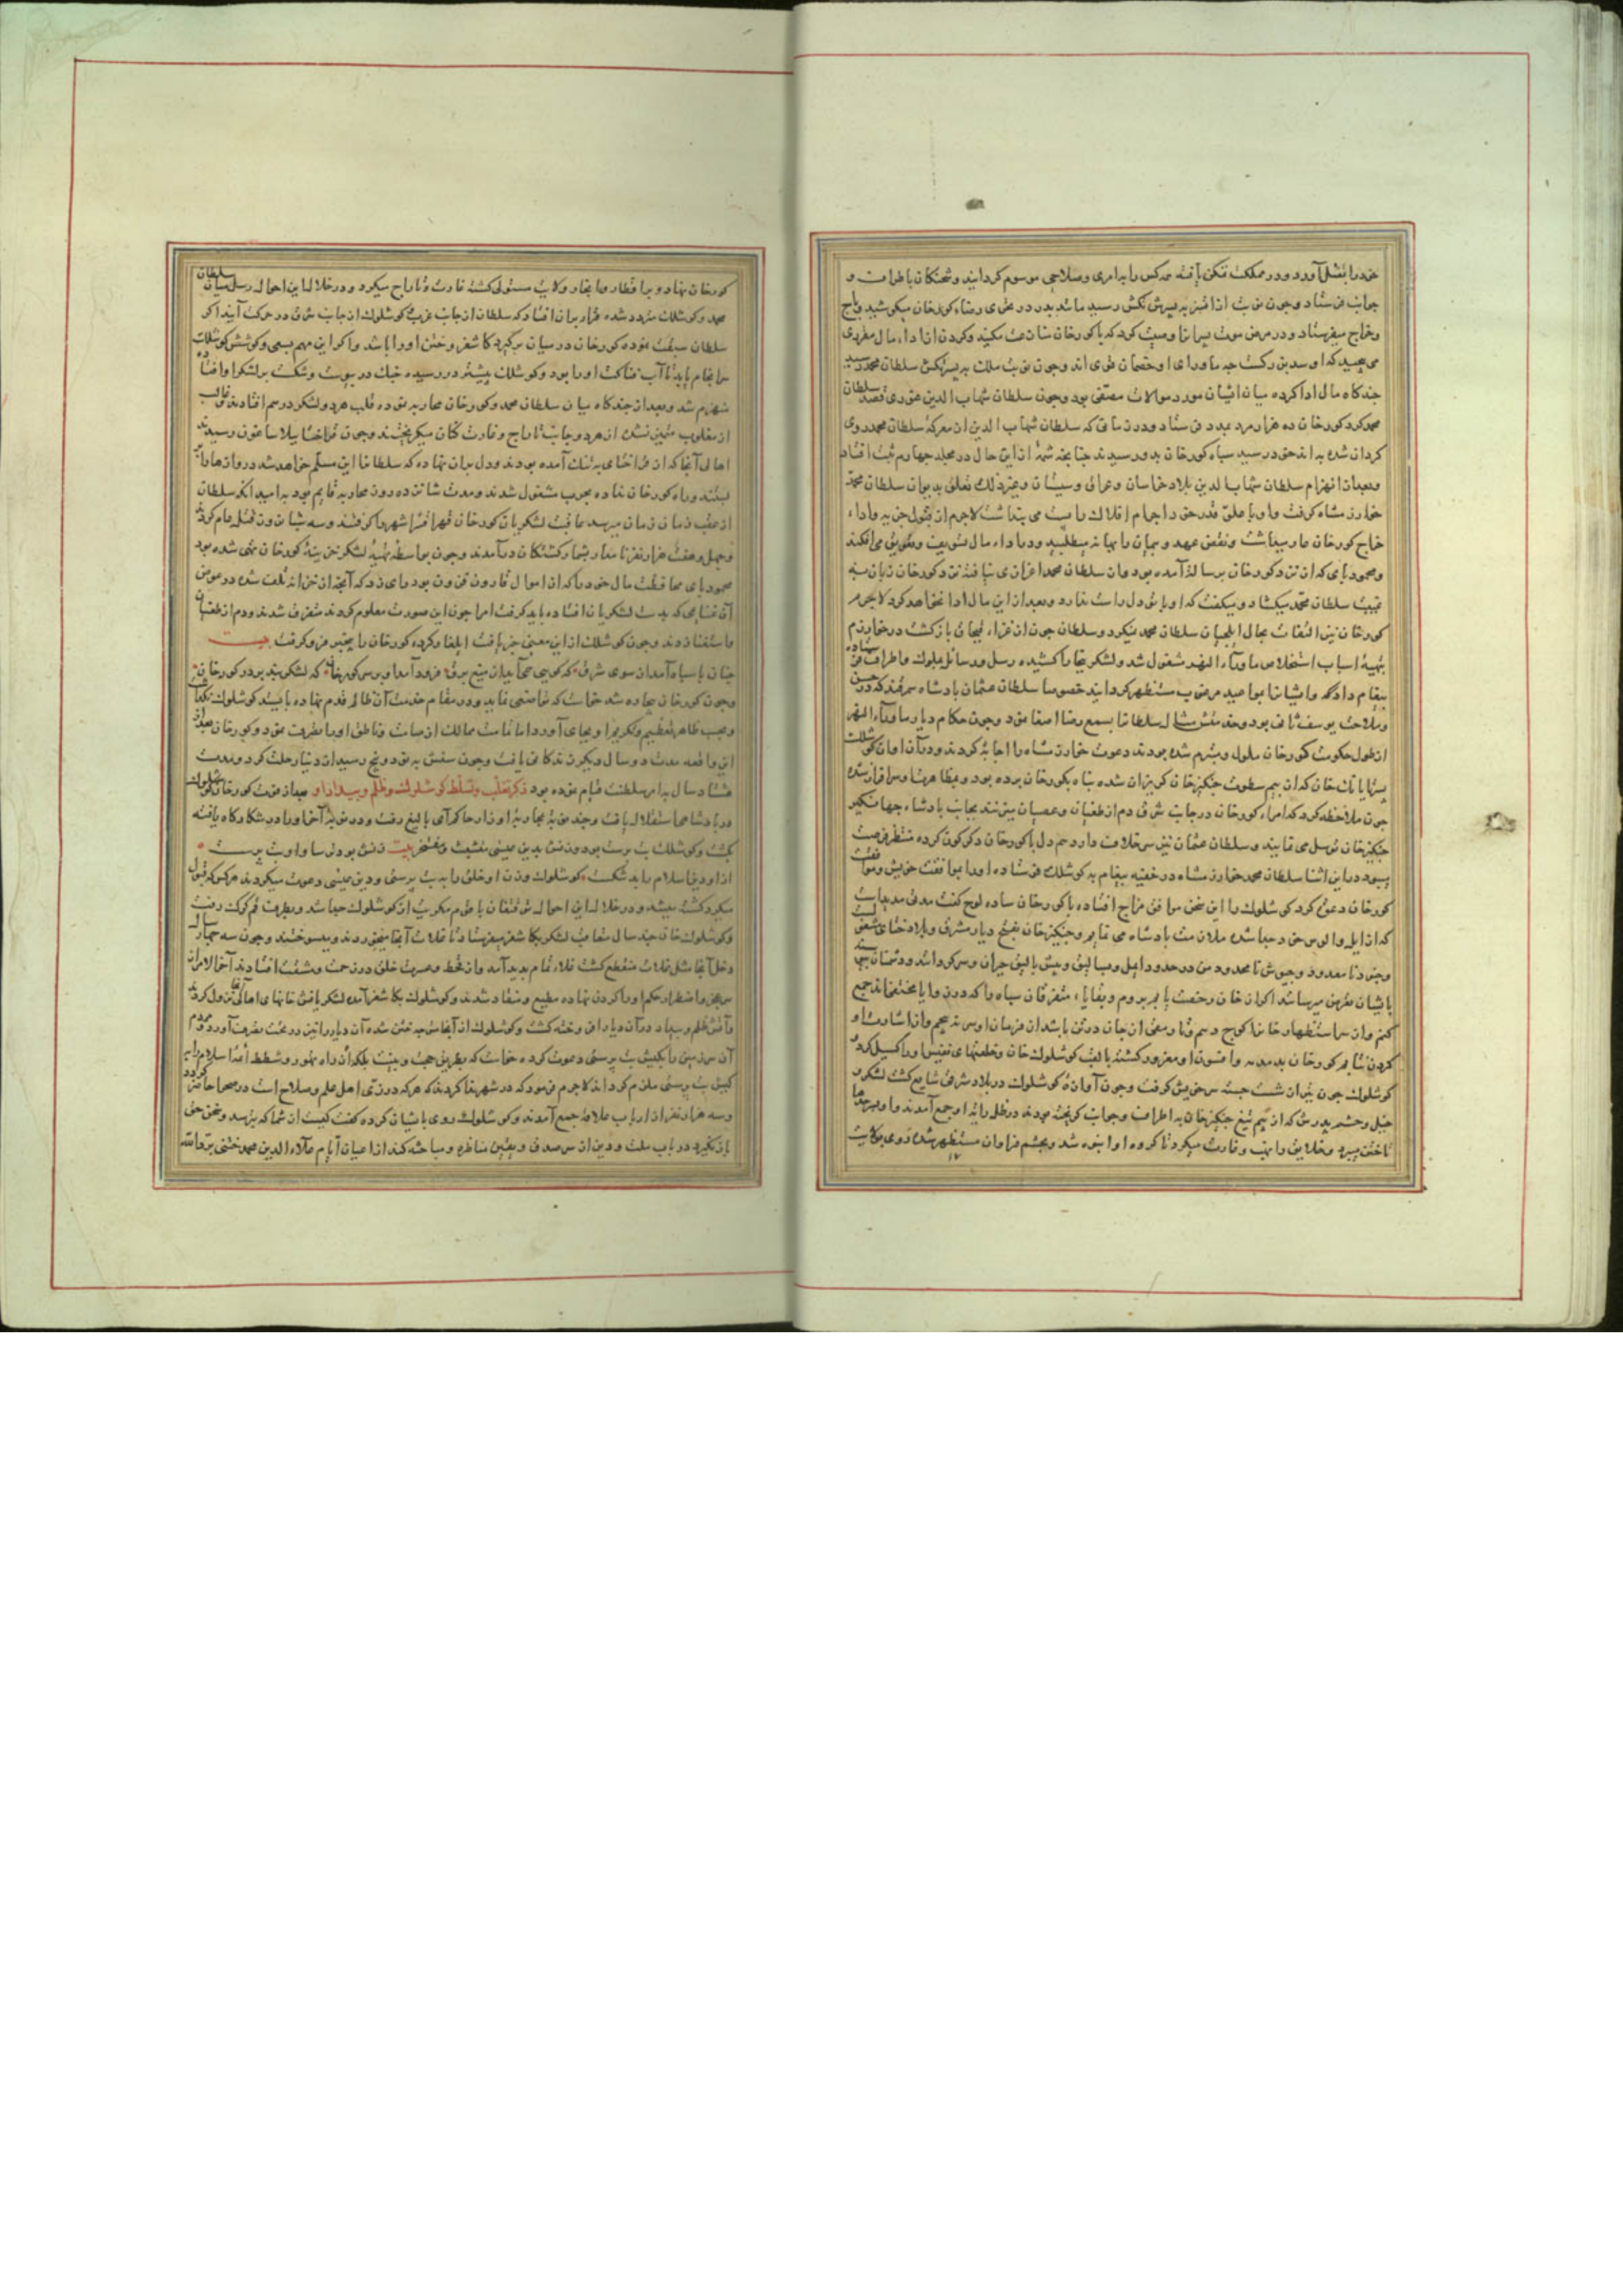 خود را بقتل آورد و در مملکت تمکن یافته هر کس را بامری و صلاحی موسوم گردانید و شحنگان باطراف و
جوانب فرستاد و چون نوبت از اتسز به پسرش تکش رسید مانند پدر در تحری رضاء کورخان میکوشید و باج
و خراج میفرستاد و در مرض موت پسرانرا وصیت کرد که با کورخان منازعت مکنید و گردن از اداء مال مقرری
می‌پیچید که او سد بزرگست چه ماورای او خصمان قوی اند و چون نوبت ملک به پسر تکش سلطان محمد رسید
چندگاه مال ادا کرده میان ایشان مورد موالات مصفی بود و چون سلطان شهاب الدین غوری قصد سلطان
محمد کرد کورخان ده هزار مرد بمدد فرستاد و در زمانی که سلطان شهاب الدین از معرکه سلطان محمد روی
گردان شده به اندخود رسید سپاه کورخان بدو رسیدند چنانچه شمهٔ از این حال در مجلد چهارم ثبت افتاد
و بعد از انهزام سلطان شهاب الدین بلاد خراسان و عراق و سیستان و غیر ذلک تعلق بدیوان سلطان محمد
خوارزمشاه گرفت و او با علو قدر خود از اجرام افلاک دایت می پنداشت لاجرم از قبول جزیه و اداء
خراج کورخان عار میداشت و نقض عهد و پیمان را بهانه میطلبید و در اداء مال تسویف و تعویق می‌افکند
و محمود بای که از نزد کورخان برسالت آمده بود و از سلطان محمد اعزازی نیافته نزد کورخان زبان به
غیبت سلطان محمد بگشاد و میگفت که او با تو دل راست ندارد و بعد از این مال ادا نخواهد کرد لاجرم
کورخان نیز التفات بحال ایلچیان سلطان محمد نکرد و سلطان چون از غزاء قبچاق بازگشت در خوارزم
بتهیهٔ اسباب استخلاص ماوراء النهر مشغول شد و لشکر ببخارا کشیده رسل و رسائل بملوک و اطراف فرستاده
پیغام داد که و ایشانرا بمواعید مرغوب مستظهر گردانید خصوصا سلطان عثمان پادشاه سمرقند که در حسن
و ملاحت یوسف ثانی بود و حقد منش مثال سلطانرا بسمع رضا اصغا نمود و چون حکام دیار ماوراء النهر
از طول حکومت کورخان ملول و متبرم شده بودند دعوت خوارزمشاه را اجابه کردند و در آن اوان کوشلک
پسر تایانک خان که از بیم سطوت جنکیزخان گریزان شده پناه بکورخان برده بود و بعطا هرها و سرافراز شده
چون ملاحظه کرد که امراء کورخان در جانب شرق دم از طغیان و عصیان میزنند بجانب پادشاه جهانگیر
جنکیزخان توسل می نمایند و سلطان عثمان نیز سر خلاف دارد هم دل با کورخان دگرگون کرده منتظر فرصت
میبود در این اثنا سلطان محمد خوارزمشاه در خفیه پیغام به کوشلک فرستاده او را بموافقت خویش و موافقت
کورخان دعوت کرد کوشلوک را این سخن موافق مزاج افتاده با کورخان ساده لوح گفت مدتی مدید است
که از ایل و الوس خود جدا شده ملازمت پادشاه می نمایم و جنکیزخان بفتح دیار مشرق و بلاد ختای مشغول
و جنود نا معدود و جیوش نا محدود من در حدود ایمیل و بیالیق و بیش بالیق حیران و سرگردانند و دشمنان
بایشان تعرض میرسانند اگر از خان رخصت یابم بروم و بقایاء متفرقان سپاه را که در زوایا مختفی‌اند جمع
کنم و از سر استظهار خانرا کوچ دهم و تا رمقی از جان در تن باشد از فرمان او سر نه پیچم و از اشارت او
گردن نتابم کورخان بدمدمه و افسون او مغرور گشته بالقب کوشلوک خان و خلعتهای نفیس او را گسیل کرد
کوشلوک چون تیر از شست جسته سر خویش گرفت و چون آوازهٔ کوشلوک در بلاد شرقی شایع گشت لشکر
خیل و حشم پدرش که از بیم تیغ جنکیزخان به اطراف و جوانب گریخته بودند در ظل رایة او جمع آمدند و او بهر جا
تاختن میبرد و خلایق را نهب و غارت میکرد تا گروه او انبوه شد و بحشم فراوان مستظهر شده روی بولایت
کورخان نهاد و بر اقطار و انحاء ولایت مستولی گشته غارت و تاراج میکرد و در خلال این احوال رسل میان سلطان
محمد و کوشلک متردد شده قرار بران افتاد که سلطان از جانب غرب و کوشلوک از جانب شرق در حرکت آیند اگر
سلطان سبقت نموده کورخان در میان برگیرد کاشغر و ختن او را باشد و اگر این مهم بسعی و کوشش کوشلک
سرانجام یابد تا آب فناکت او را بود و کوشلک پیشتر در رسیده جنگ در پیوست و شکست بر لشکر او افتاده
منهزم شد و بعد از چندگاه میان سلطان محمد و کورخان محاربه نموده قلب هر دو لشکر در هم افتادند غالب
از مغلوب متمیز نشد از هر دو جانب تاراج و غارت کنان میگریختند و چون قراختا ببلاساغون رسیدند
اهالی آنجا که از قراختای به تنگ آمده بودند و دل بران نهاده که سلطانرا این مسلم خواهد شد دروازها را
ببستند و راه کورخان نداده بحرب مشغول شدند و مدت شانزده روز محاربه قایم بود به امید آنکه سلطان
از عقب زمان زمان میرسد عاقبت لشکریان کورخان قهرا قسرا شهر را گرفتند و سه شبان‌روز قتل عام کردند
و چهل و هفت هزار نفر نامدار بشمار کشتگان درآمدند و چون بواسطه تهیهٔ لشکر خزینهٔ کورخان تهی شده بود
محمود بای محافظت مال خود را که از اموال قارون فزون بود رای زد که آنچه از خزانه تلف شده در عوض
آن غنایمی که بدست لشکریان افتاده باید گرفت امرا چون این صورت معلوم کردند متفرق شدند و دم از طغیان
و استغنا زدند و چون کوشلک از این معنی خبر یافت ایلغار کرده کورخان را بیخبر فرو گرفت بیت
چنان با سپاه آمد از سوی شرق که گویی همی آید از میغ برق فرود آمد او بر سر کورخان که لشکر نبد بر در کورخان
و چون کورخان بیچاره شد خواست که تواضعی نماید و در مقام خدمت آن ظالم قدم نهاده بایستد کوشلوک نگذاشت
و بحسب ظاهر تعظیم و تکریم او بجای آورد اما تمامت ممالک از صامت و ناطق او را بتصرف نمود و کورخان بعد از
این واقعه مدت دو سال دیگر زندگانی یافت و چون سنش به نود و پنج رسید از دنیا رحلت کرد و مدت
هشتاد سال به امر سلطنت قیام نموده بود ذکر تغلب و تسلط کوشلوک و ظلم و بیداد او بعد از فوت کورخان کوشلوک
در پادشاهی استقلال یافت و چند نوبة بمحاربهٔ اوزار حاکم آلمالیغ رفت و در نوبهٔ آخر او را در شکارگاه یافته
بکشت و کوشلک بت پرست بود و زنش بدین عیسی متشبث و مفتخر بیت زنش بود ترسا و او بت پرست
از او دین اسلام را بد شکست کوشلوک و زن او خلق را به بت پرستی و دین عیسی دعوت میکردند هر کو که قبول
میکرد کشته میشد و در خلال این احوال
و کوشلوک خان چند سال متعاقب لشکر بکاشغر میفرستاد تا غلات آنجا میخوردند و میسوختند و چون سه چهار سال
دخل آنجا مثل غلات منقطع گشت غلاء تمام پدید آمد و از قحط و عسرت خلق در زحمت و مشقت افتادند آخر الامر از
سر عجز و اضطرار حکم او را گردن نهاده مطیع و منقاد شدند و کوشلوک بکاشغر آمده لشکریانش بخانهای اهالی آنجا نزول کردند
و آتش ظلم و بیداد در آن دیار افروخته گشت و کوشلوک از آنجا متوجه ختن شده آن دیار را نیز در تحت تصرف آورد و مردم
آن سرزمین را بکیش بت پرستی دعوت کرده خواست که بطریق حجت و بینت بلکه از راه تهور و شطط اهل اسلام را به
کیش بت پرستی ملزم گرداند لاجرم فرمود که در شهر ندا کردند که هر که در زی اهل علم و صلاح است در صحرا حاضر گردد
و سه هزار نفر از ارباب علامه جمع آمدند و کوشلوک روی بایشان کرده گفت کیست از شما که نترسد و سخن حق
باز نگیرد در باب ملت و دین از سر صدق و یقین مناظره و مباحثه کند از اعیان ایام علاء الدین محمد ختنی برد الله